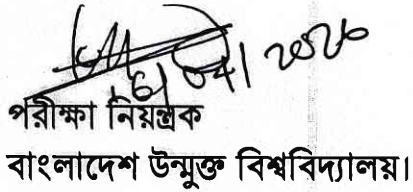 16/04/2026
পরীক্ষা নিয়ন্ত্রক
বাংলাদেশ উন্মুক্ত বিশ্ববিদ্যালয়।